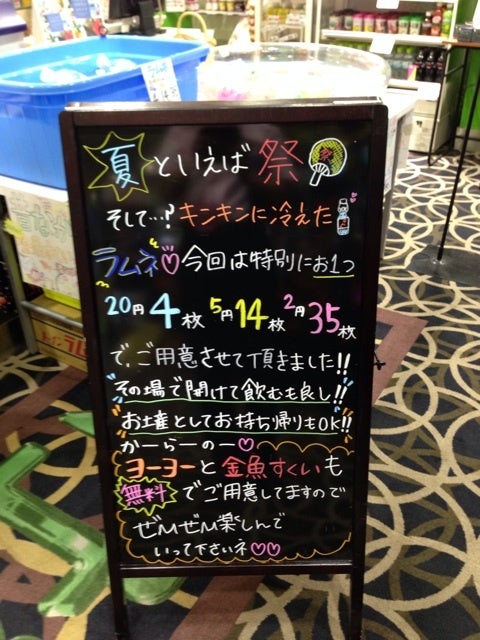 夏といえば祭
そして…?キンキンに冷えた
ラムネ♡今回は特別にお1つ
20円4枚5円14枚2円35枚
で、ご用意させて頂きました!!
その場で開けて飲むも良し!!
お土産としてお持ち帰りもOK!!
かーらーのー♡
ヨーヨーと金魚すくいも
無料でご用意してますので
ぜMぜM楽しんで
いって下さいネ♡♡